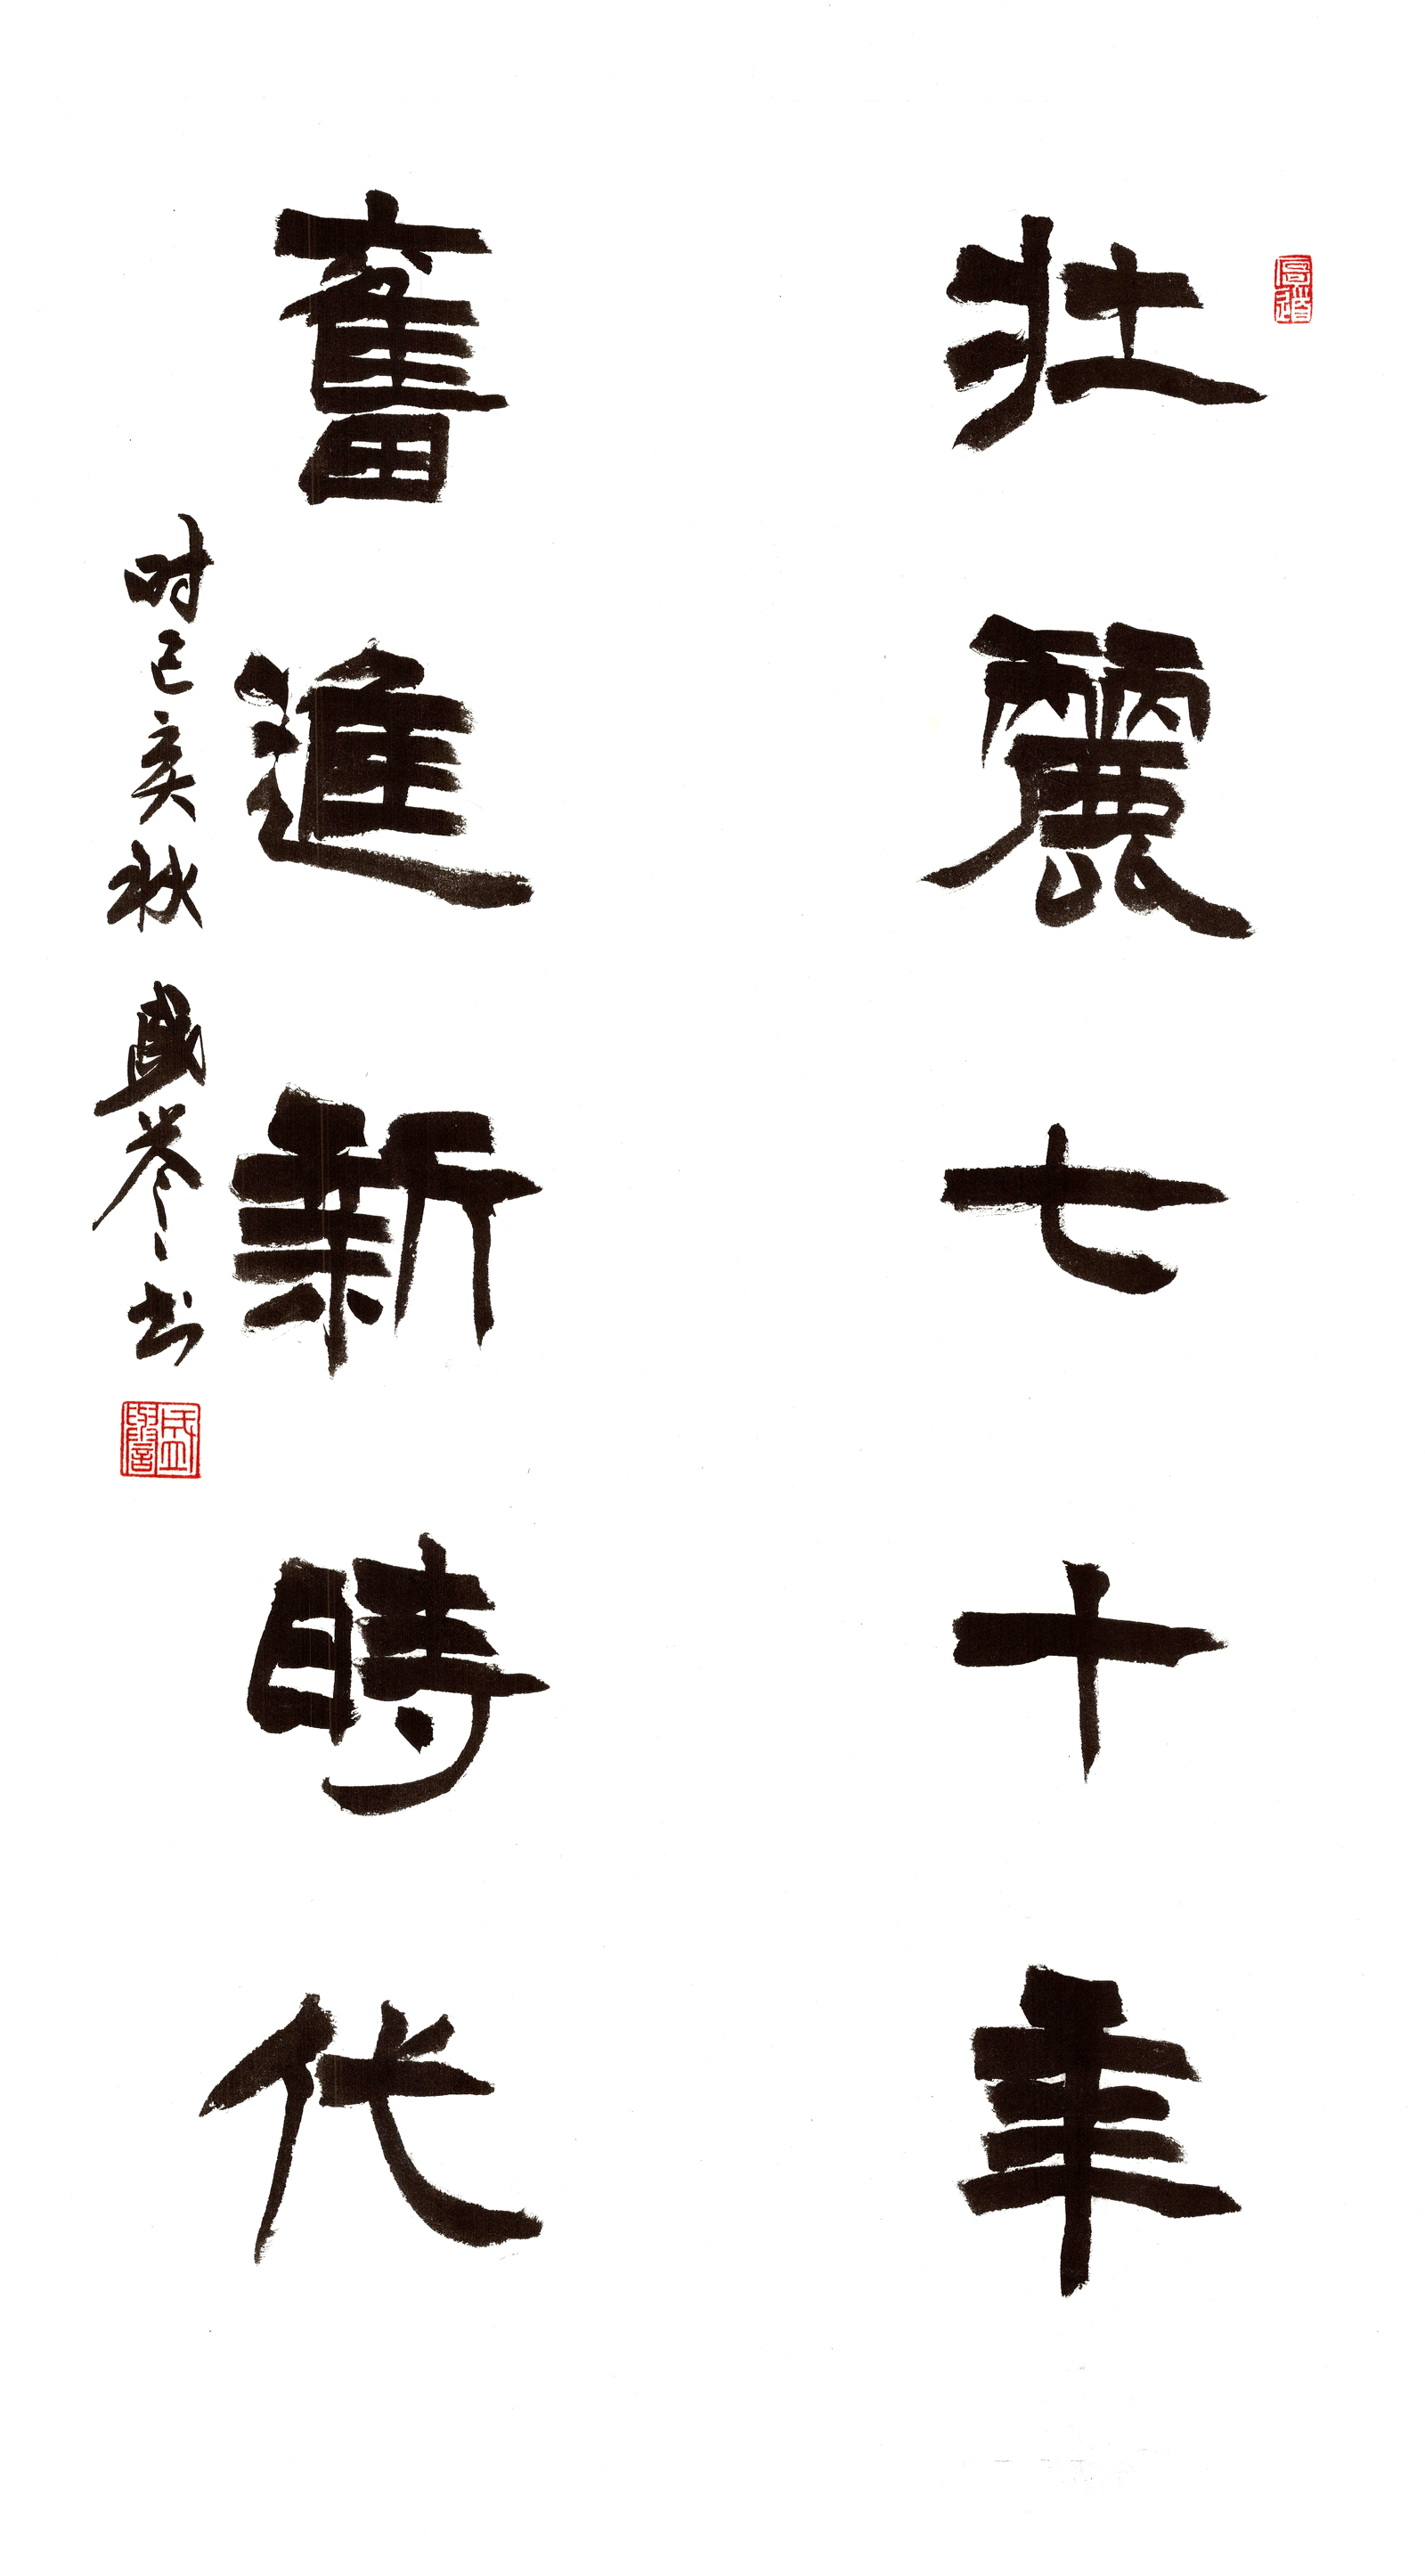 壯麗七十年
奮進新時代
时己亥秋 盛誉书
盛譽